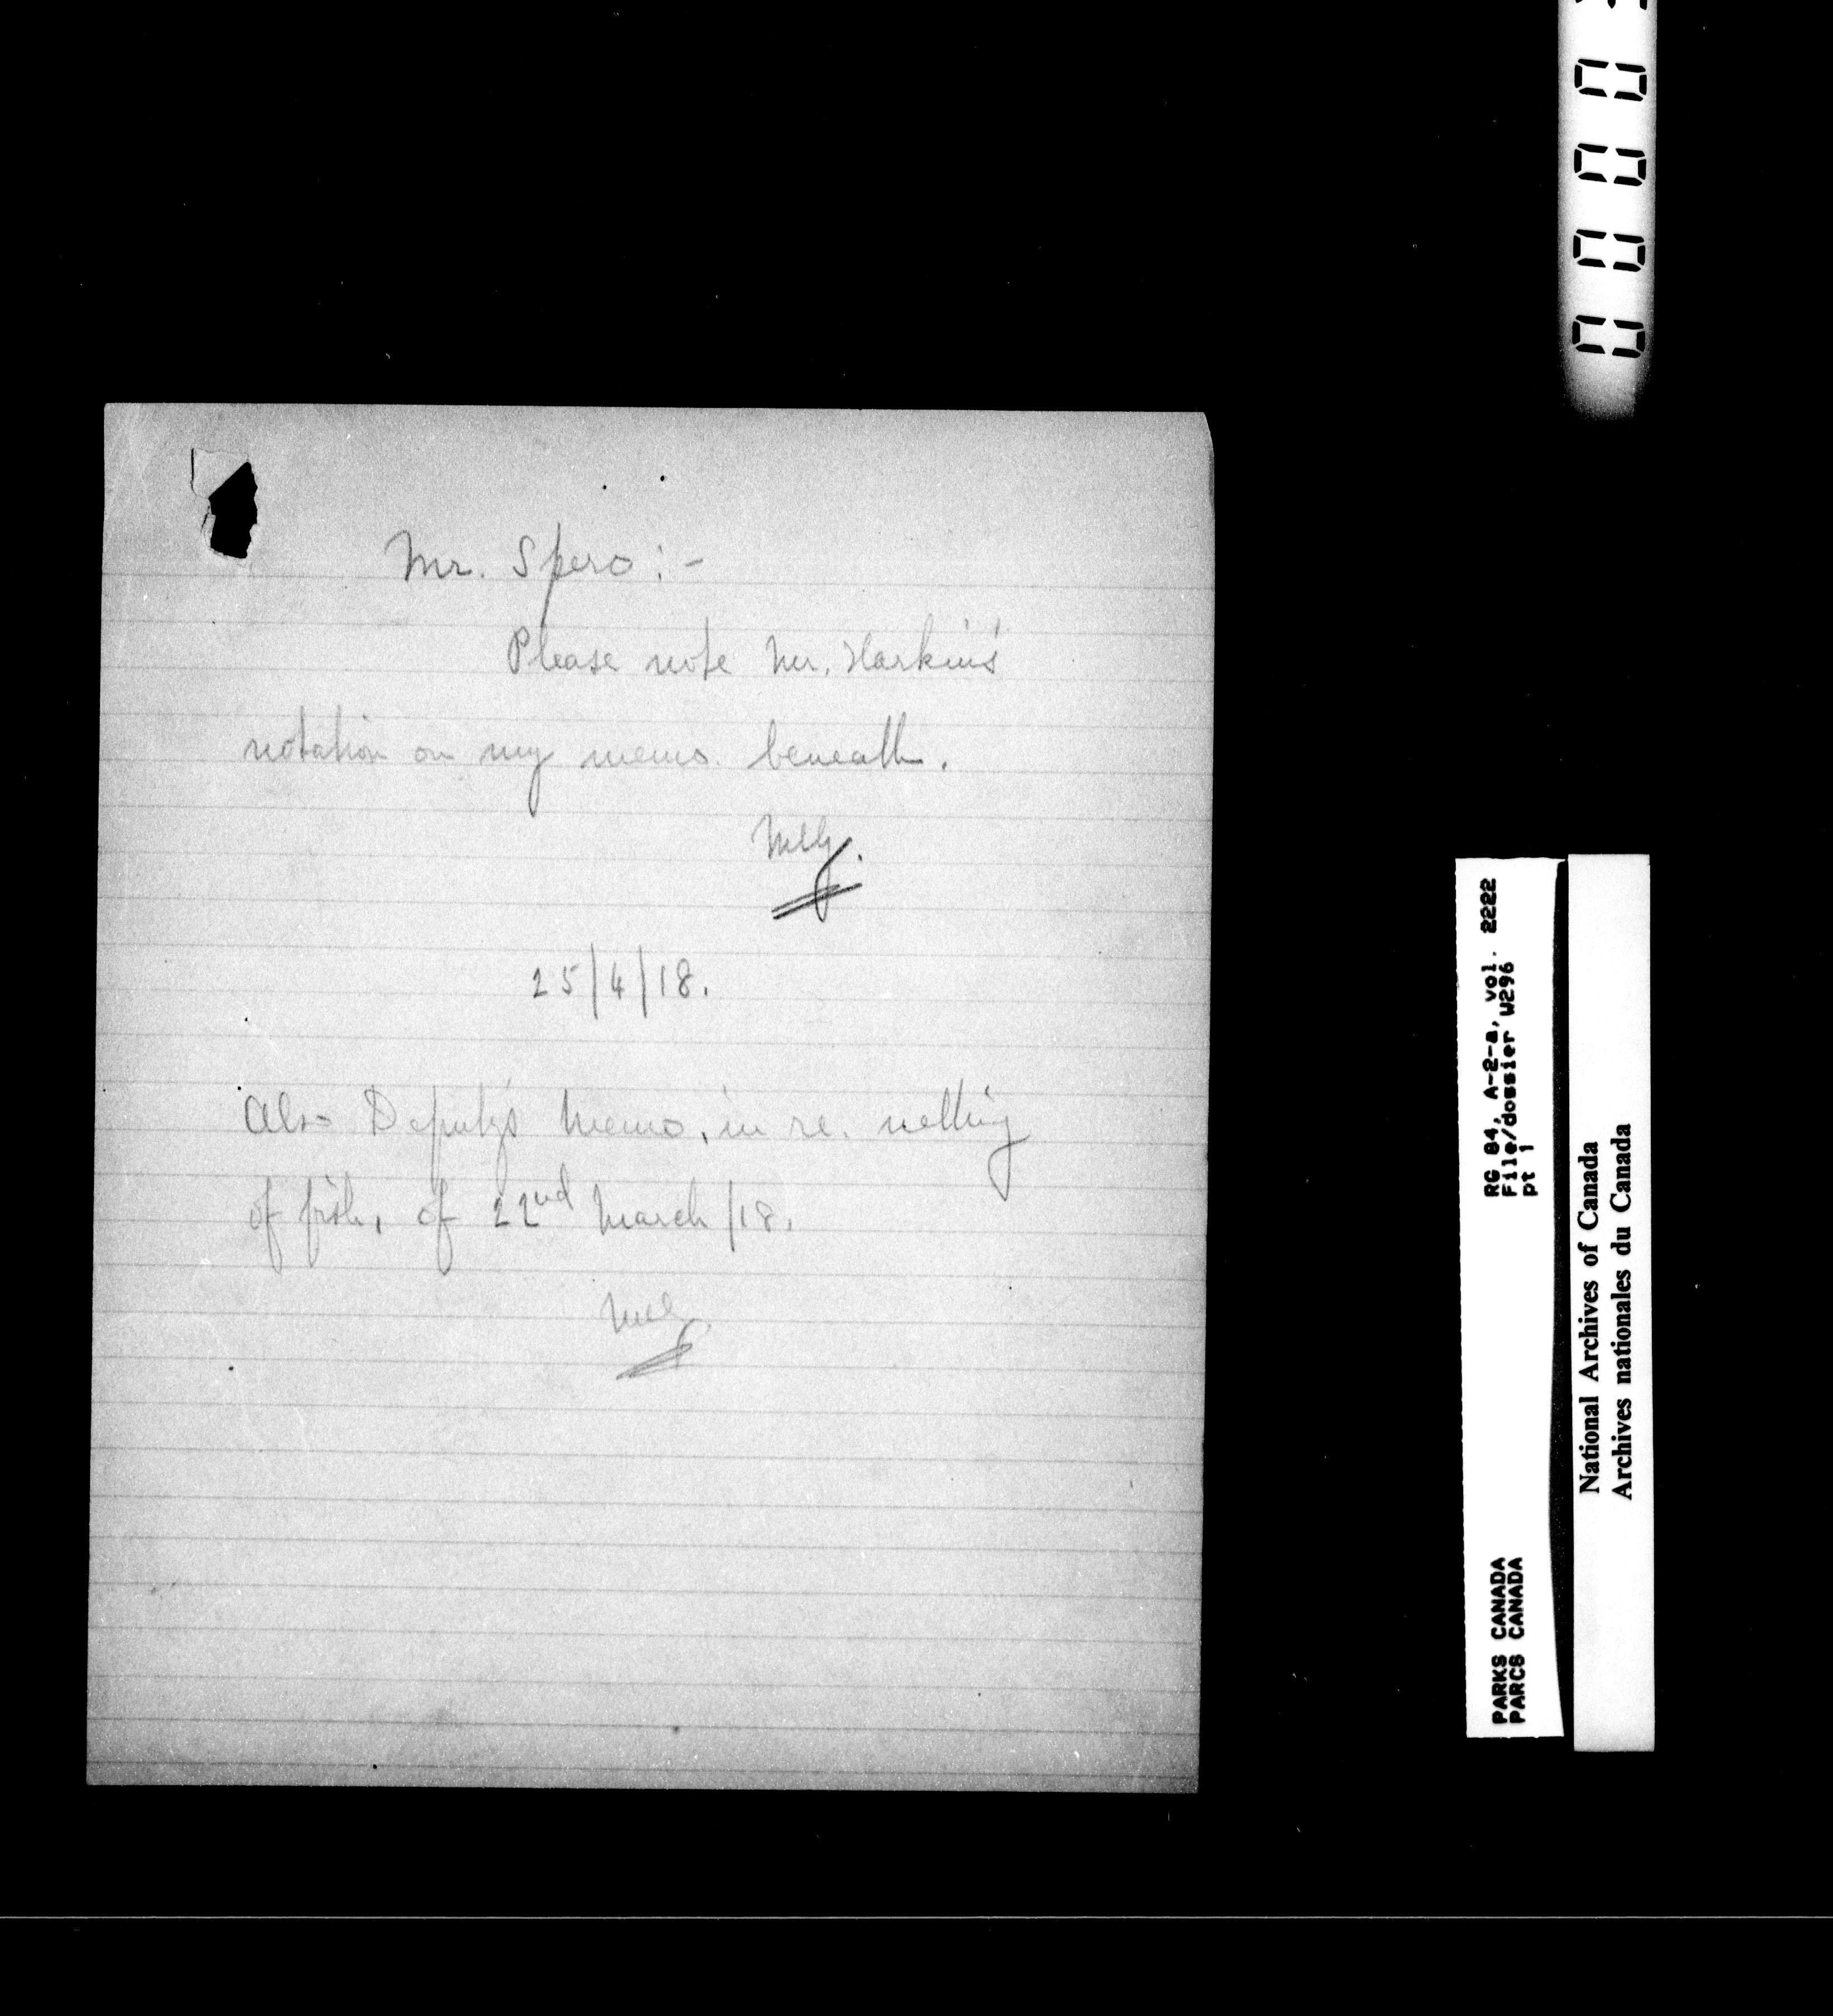 Mr. Spero :-
Please note Mr. Harkin's
notation on my memo. beneath.
25/4/18.
Also Deputy's Memo. in re. netting
of fish, of 22nd March /18.
0000
RG 84, A-2-a, vol. 2222
File/dossier W296
pt 1
PARKS CANADA
PARCS CANADA
National Archives of Canada
Archives nationales du Canada